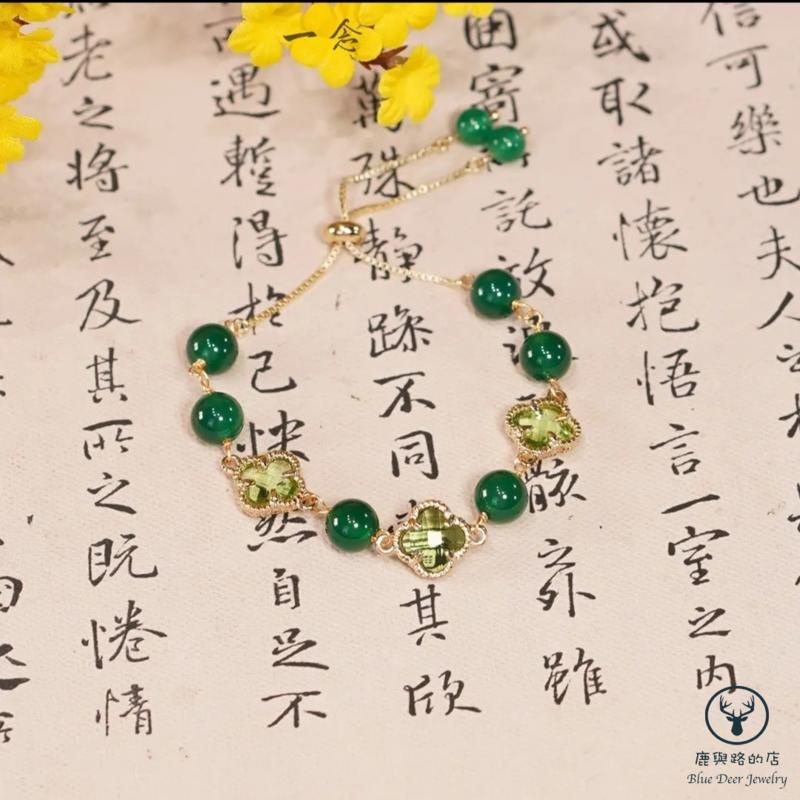 一念
信可樂也夫人
或取諸懷抱悟言一室之内
因寄託放骸之外雖
萬殊靜躁不同其欣
遇蹔得於己快然自足不
老之將至及其所之既惓情
鹿與路的店
Blue Deer Jewelry